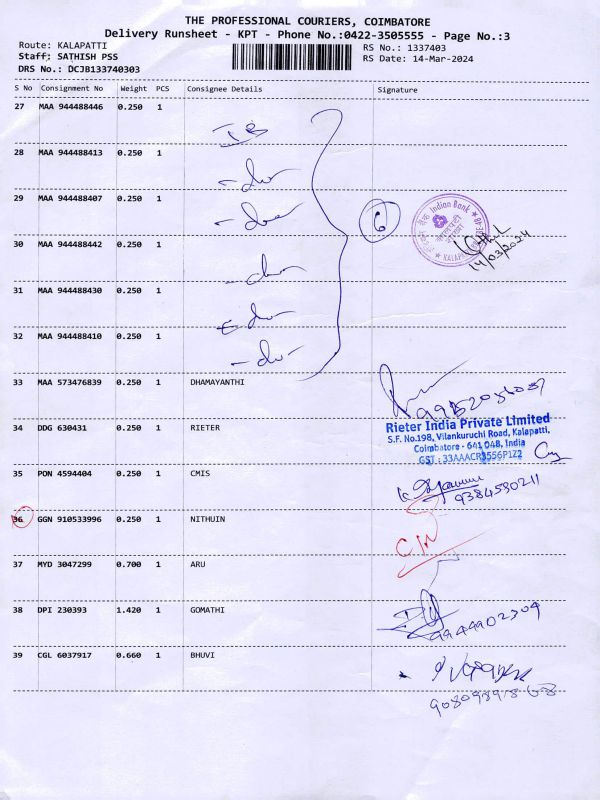 THE PROFESSIONAL COURIERS, COIMBATORE
Delivery Runsheet - KPT - Phone No.:0422-3505555 - Page No.:3
Route: KALAPATTI
RS No.: 1337403
Staff: SATHISH PSS
RS Date: 14-Mar-2024
DRS No.: DCJB133740303
S No Consignment No Weight PCS Consignee Details Signature
27 MAA 944488446 0.250 1
IB
28 MAA 944488413 0.250 1
-do-
29 MAA 944488407 0.250 1
-do-
6
Indian Bank
14/03/2024
30 MAA 944488442 0.250 1
-do-
31 MAA 944488430 0.250 1
-do-
32 MAA 944488410 0.250 1
-do-
33 MAA 573476839 0.250 1 DHAMAYANTHI
34 DDG 630431 0.250 1 RIETER
Rieter India Private Limited
S.F. No.198, Vilankuruchi Road, Kalapatti,
Coimbatore - 641 048, India
GST : 33AAACR3556P1Z2
35 PON 4594404 0.250 1 CMIS
9384590211
36 GGN 910533996 0.250 1 NITHUIN
37 MYD 3047299 0.700 1 ARU
38 DPI 230393 1.420 1 GOMATHI
9944902304
39 CGL 6037917 0.660 1 BHUVI